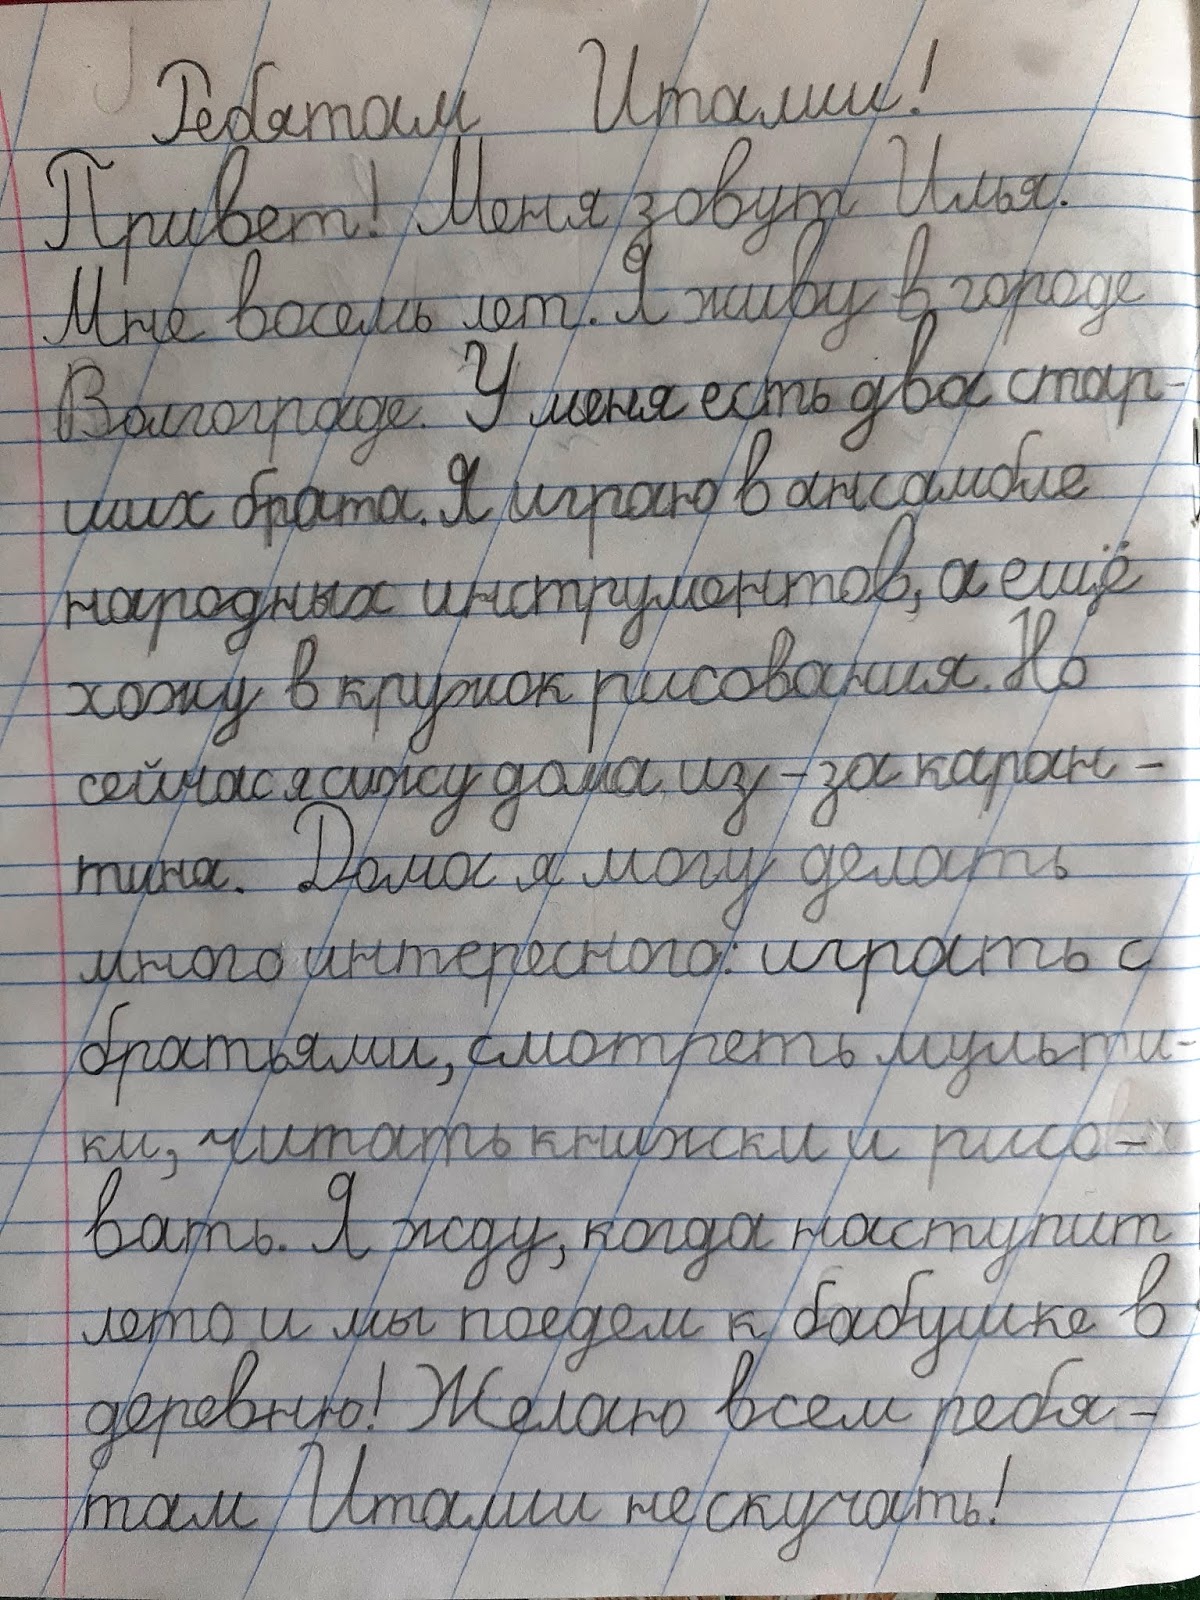 Ребятам Италии!
Привет! Меня зовут Илья.
Мне восемь лет. Я живу в городе
Волгограде. У меня есть два стар-
ших брата. Я играю в ансамбле
народных инструментов, а ещё
хожу в кружок рисования. Но
сейчас я сижу дома из-за каран-
тина. Дома я могу делать
много интересного: играть с
братьями, смотреть мульти-
ки, читать книжки и рисо-
вать. Я жду, когда наступит
лето и мы поедем к бабушке в
деревню! Желаю всем ребя-
там Италии не скучать!